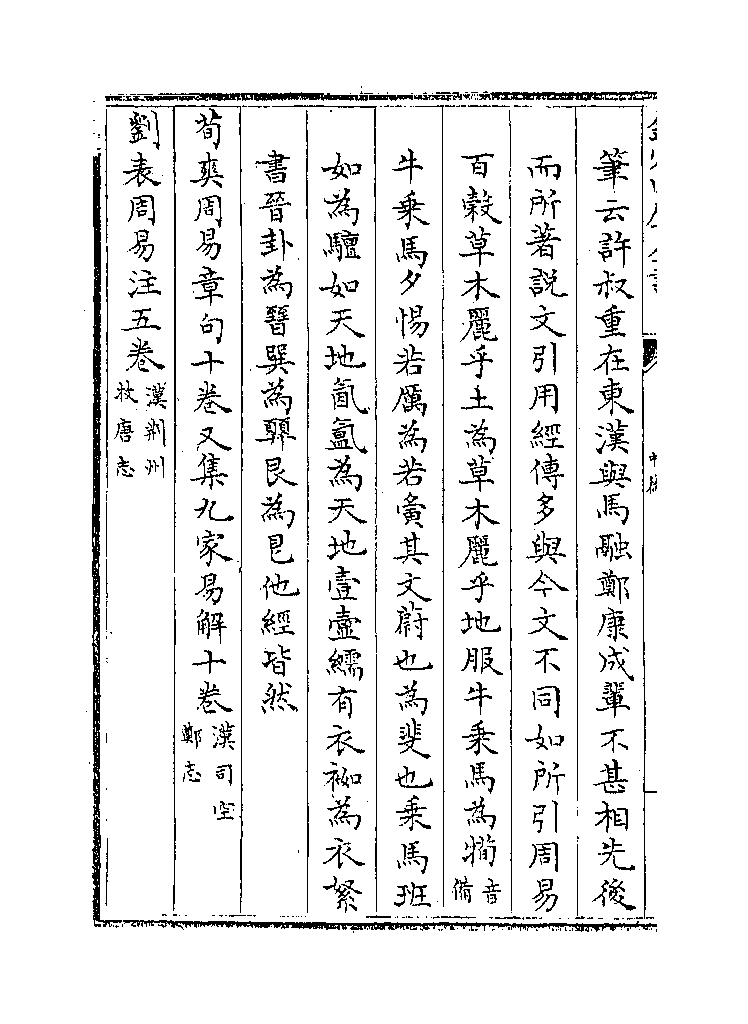 筆云許叔重在東漢與馬融鄭康成輩不甚相先後
而所著説文引用經傳多與今文不同如所引周易
百榖草木麗乎土為草木麗乎地服牛乗馬為犕音備
牛乗馬夕惕若厲為若夤其文蔚也為斐也乗馬班
如為驙如天地氤氲為天地壹壷繻有衣袽為衣絮
書晉卦為㬜巽為顨艮為皀他經皆然
荀爽周易章句十卷又集九家易解十卷漢司空鄭志
劉表周易注五卷漢荆州牧唐志